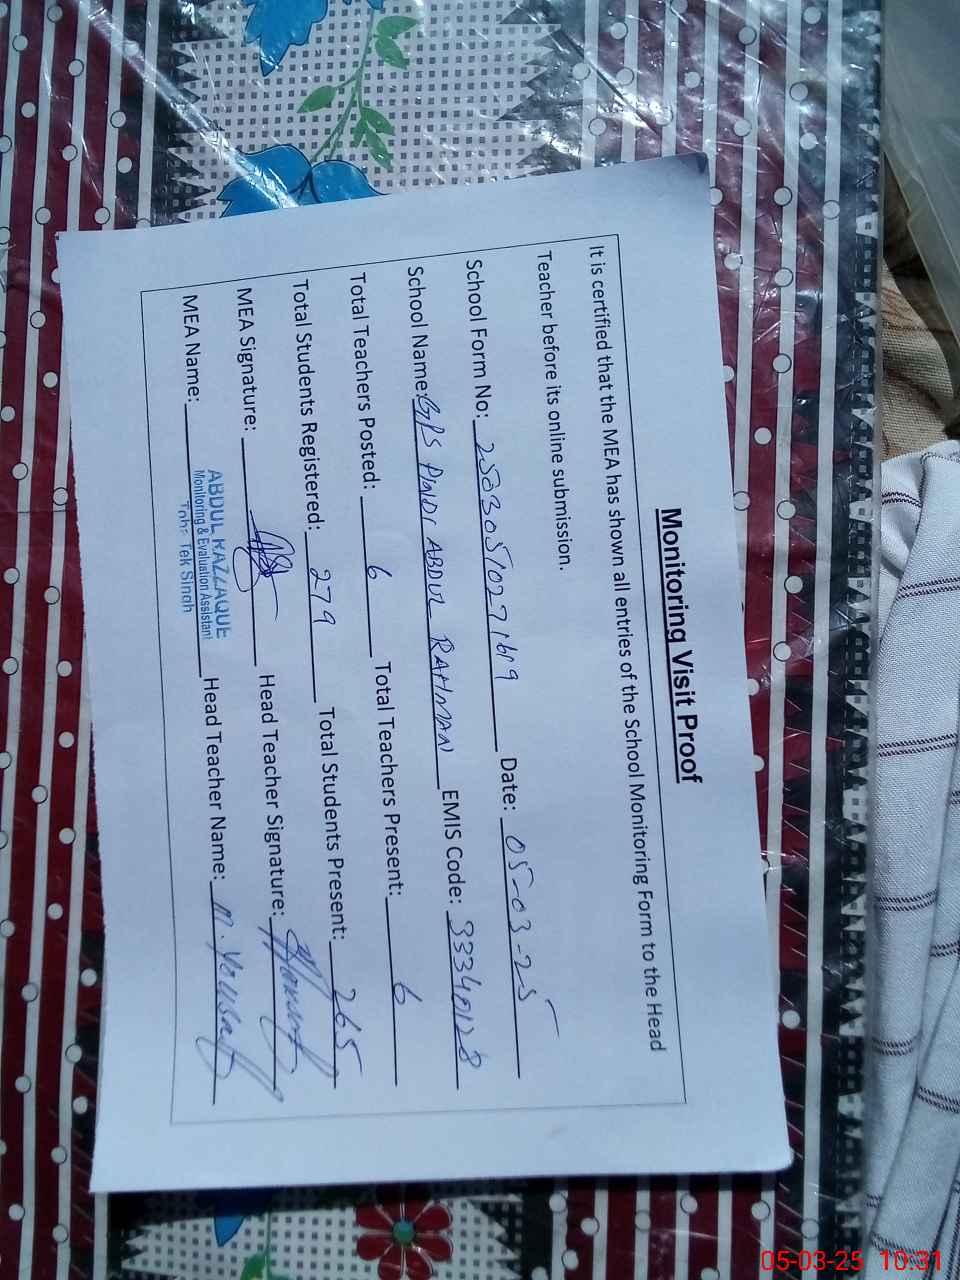 Monitoring Visit Proof
It is certified that the MEA has shown all entries of the School Monitoring Form to the Head
Teacher before its online submission.
School Form No: 25030510271619 Date: 05-03-25
School Name: GPS ABDUL RAHMAN EMIS Code: 33340128
Total Teachers Posted: 6 Total Teachers Present: 6
Total Students Registered: 279 Total Students Present: 265
MEA Signature: Head Teacher Signature:
MEA Name: ABDUL RAZZAQUE Head Teacher Name: M. Yousaf
Monitoring & Evaluation Assistant
Toba Tek Singh
05-03-25 10:31